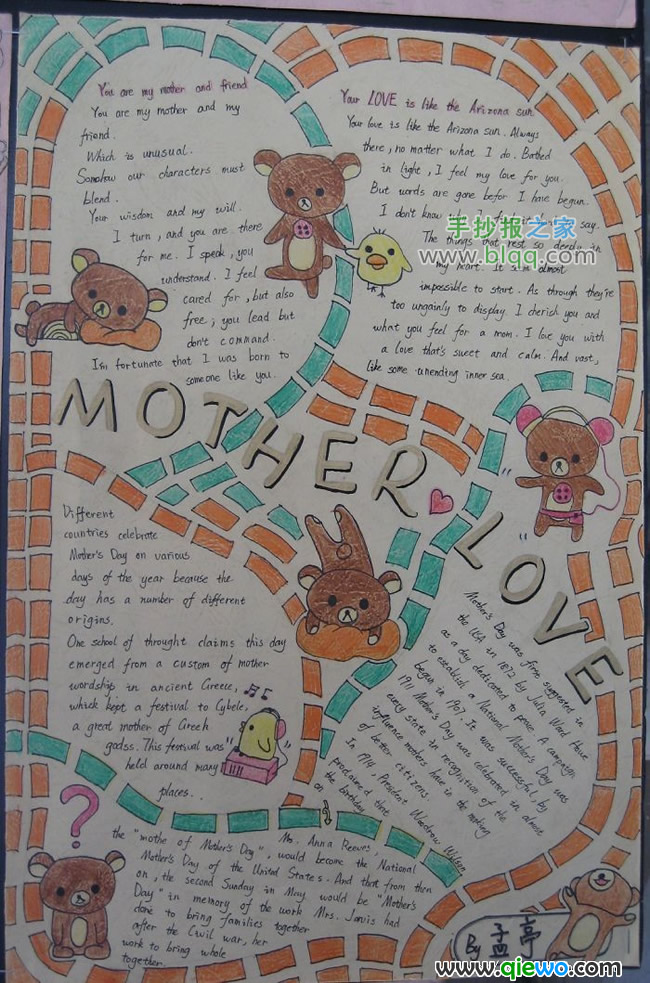 You are my mother and friend
You are my mother and my
friend.
Which is unusual.
Somehow our characters must
blend.
Your wisdom and my will.
I turn, and you are there
for me. I speak, you
understand. I feel
cared for, but also
free; you lead but
don't command.
I'm fortunate that I was born to
someone like you.
Your LOVE is like the Arizona sun.
Your love is like the Arizona sun. Always
there, no matter what I do. Bathed
in light, I feel my love for you.
But words are gone befor I have begun.
I don't know say.
The things that rest so deeply in
my heart. It seem almost
impossible to start. As through they're
too ungainly to display. I cherish you and
what you feel for a mom. I love you with
a love that's sweet and calm. And vast,
like some unending inner sea.
手抄报之家
www.blqq.com
MOTHER LOVE
Different
countries celebrate
Mother's Day on various
days of the year because the
day has a number of different
origins.
One school of thought claims this day
emerged from a custom of mother
wordship in ancient Greece,
which kept a festival to Cybele,
a great mother of Greeh
godss. This festival was
held around many
places.
Mother's Day was first suggested in
the USA in 1872 by Julia Ward Howe
as a day dedicated to peace. A campaign
to establish a National Mother's Day was
begun in 1907. It was successful by
1911 Mother's Day was celebrated in almost
every state in recognition of the
influence mothers have in the making
of better citizens.
In 1914, President Woodrow Wilson
proclaimed that
on the birthday
?
the "mothe of Mother's Day", Mrs. Anna Reeves,
Mother's Day of the United States. would become the National
on, the second Sunday in May And that from then
Day" in memory of the work would be "Mother's
done to bring families together Mrs. Jarvis had
after the Civil war, her
work to bring whole
together.
By 孟亭
www.qiewo.com